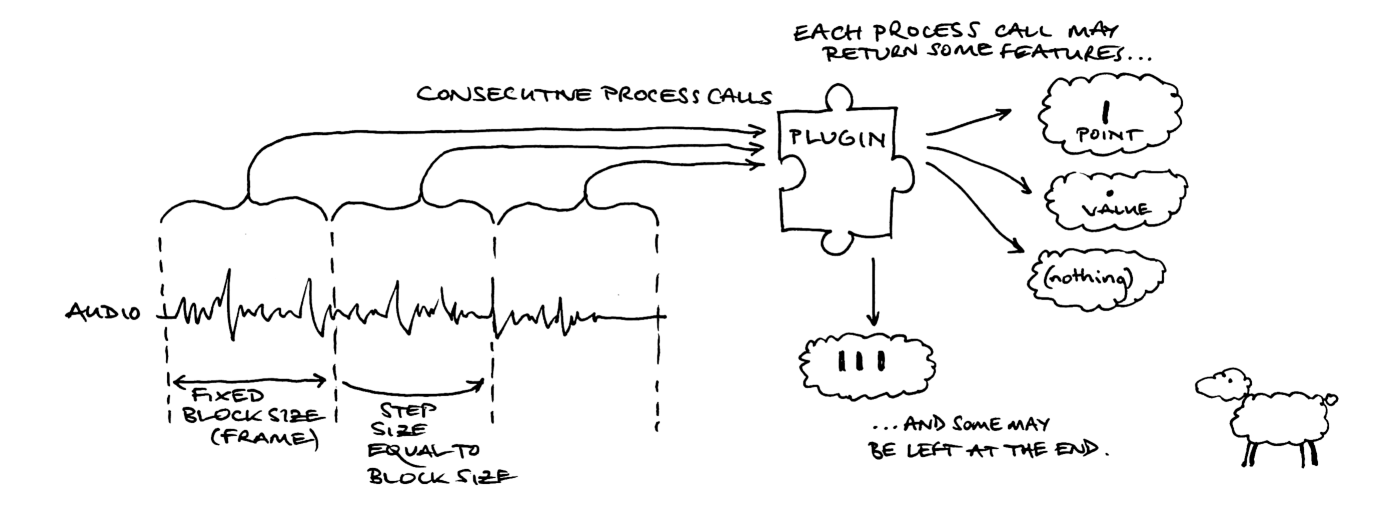 EACH PROCESS CALL MAY
RETURN SOME FEATURES...
CONSECUTIVE PROCESS CALLS
PLUGIN
POINT
VALUE
(nothing)
AUDIO
FIXED
BLOCK SIZE
(FRAME)
STEP
SIZE
EQUAL TO
BLOCK SIZE
...AND SOME MAY
BE LEFT AT THE END.